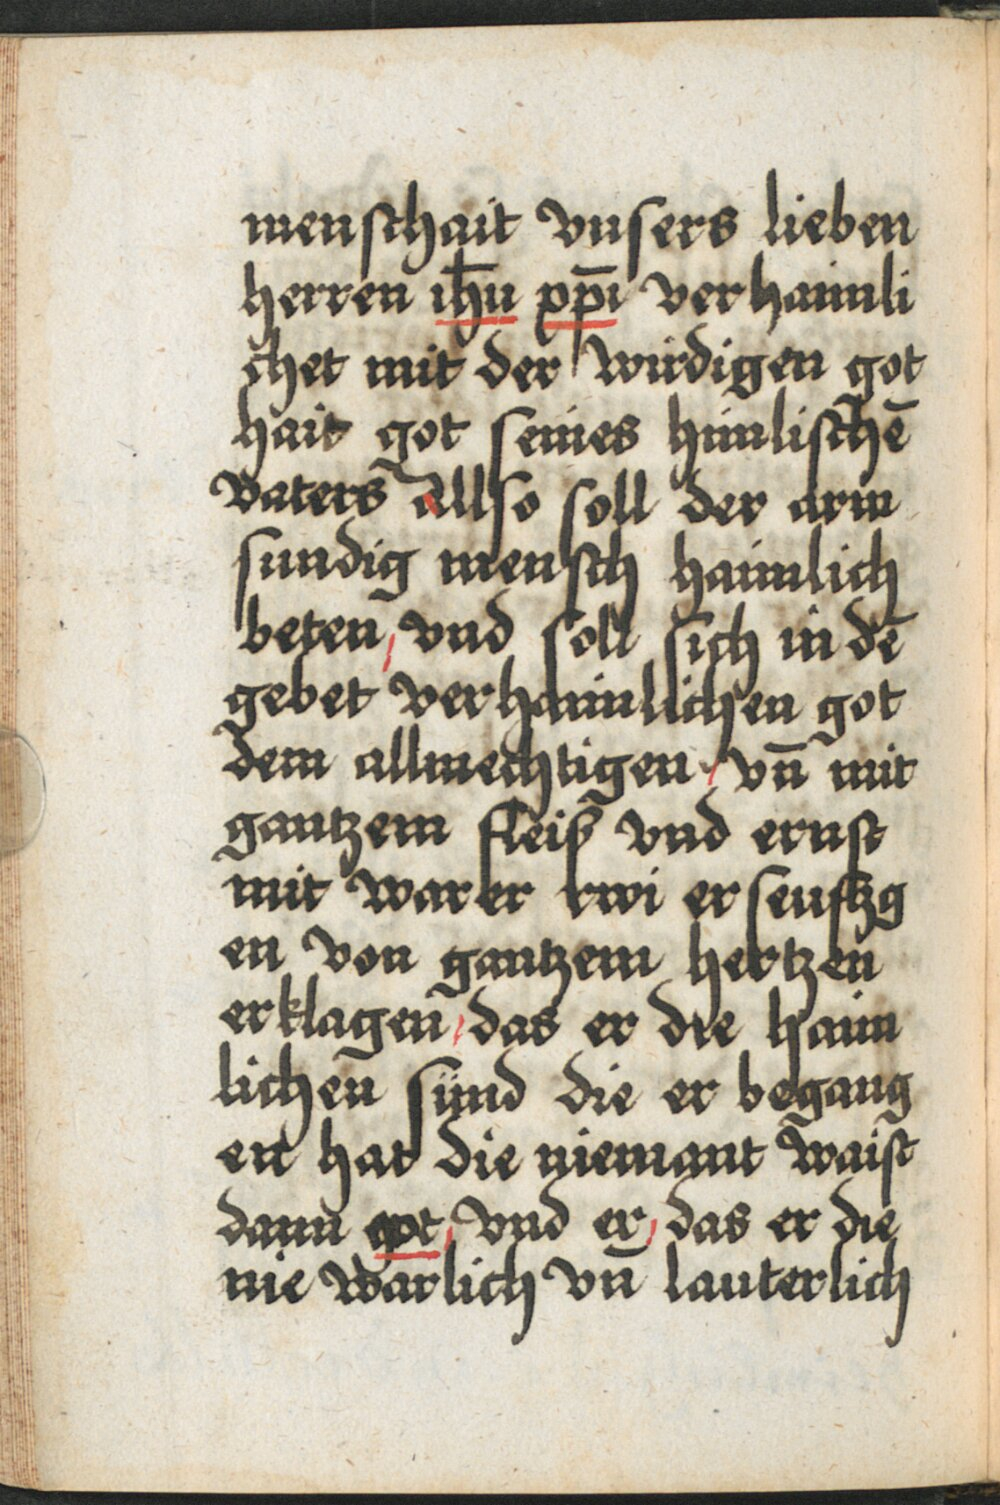 menschait vnsers lieben
herren ih̄u xp̄i verhaimli
chet mit der wirdigen got
hait got seines himlischē
vaters Allso soll der arm
sundig mensch haimlich
beten / vnd soll sich in dē
gebet verhaimlichen got
dem allmechtigen / vn̄ mit
gantzem fleiß vnd ernst
mit warer rwi erseufftzg
en von gantzem hertzen
erklagen / das er die haim
lichen sünd die er begang
en hat die niemant waist
dann got / vnd er / das er die
nie warlich vn̄ lauterlich